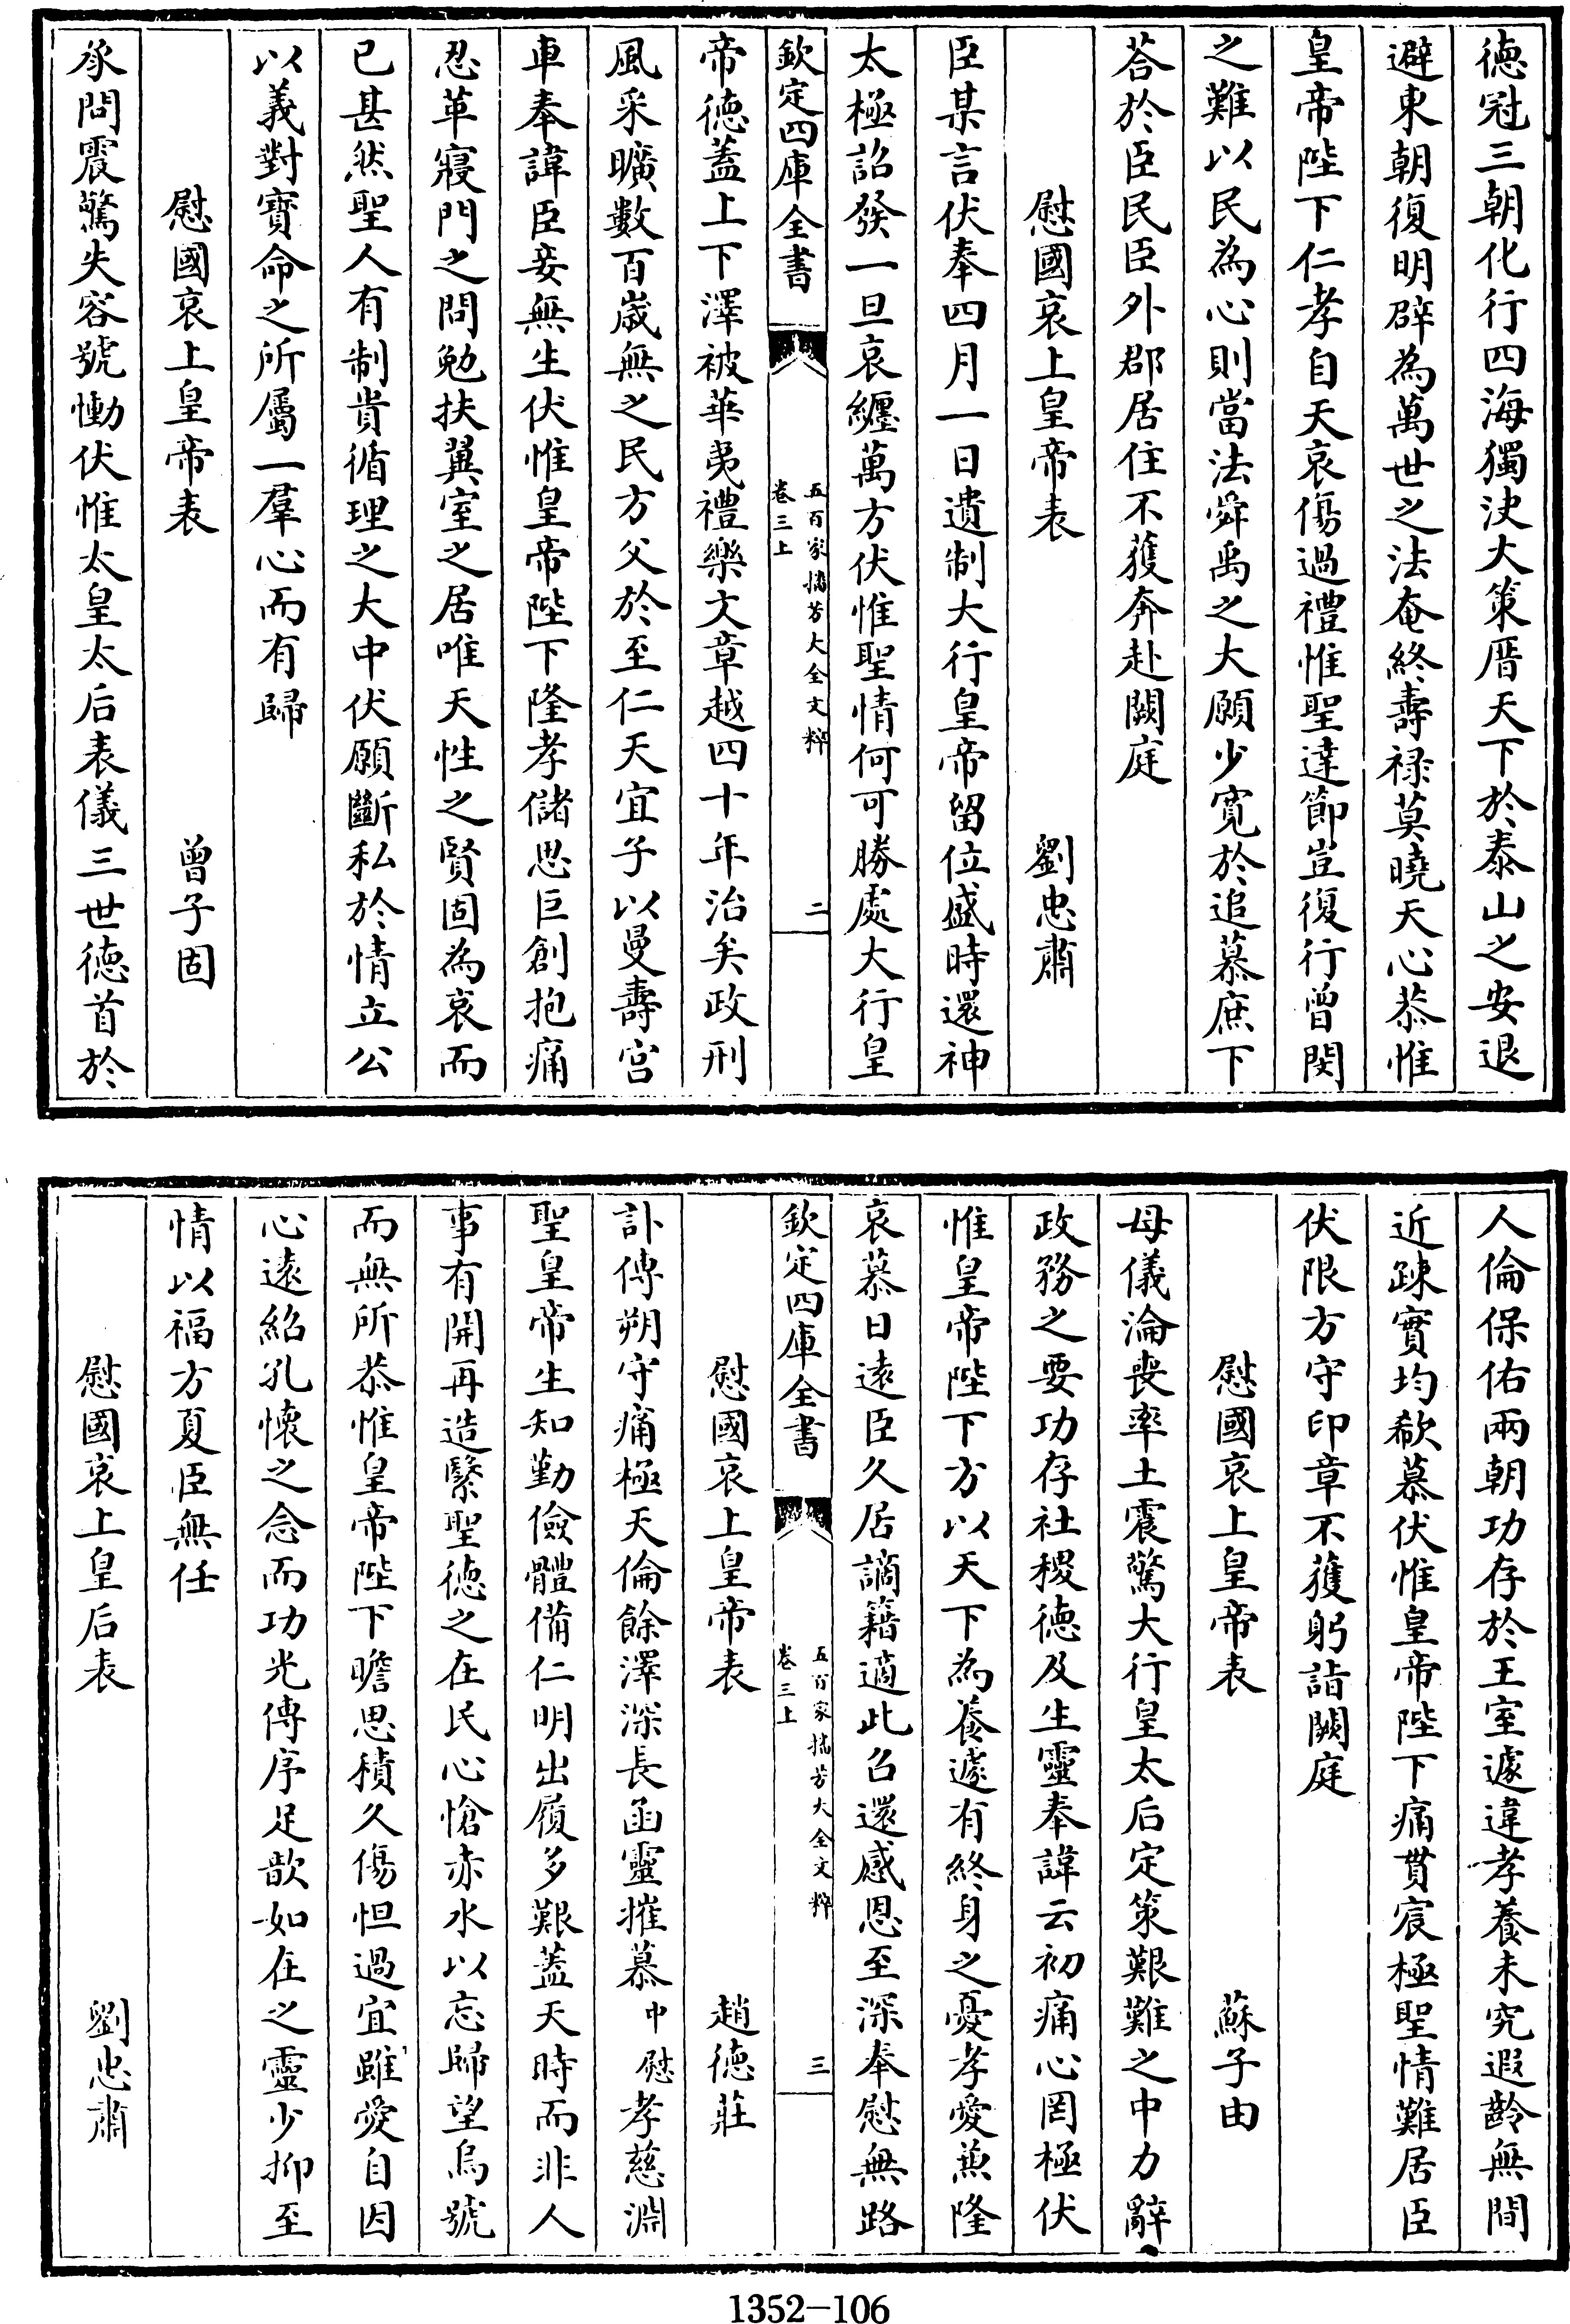 德冠三朝化行四海獨決大策厝天下於泰山之安退
避東朝復明辟為萬世之法奄終壽禄莫曉天心恭惟
皇帝陛下仁孝自天哀傷過禮惟聖達節豈復行曾閔
之難以民為心則當法舜禹之大願少寛於追慕庶下
荅於臣民臣外郡居住不獲奔赴闕庭
慰國哀上皇帝表 劉忠肅
臣某言伏奉四月一日遺制大行皇帝留位盛時還神
太極詔發一旦哀纏萬方伏惟聖情何可勝處大行皇
欽定四庫全書 五百家播芳大全文粹 卷三上 二
帝德蓋上下澤被華夷禮樂文章越四十年治矣政刑
風采曠數百歲無之民方父於至仁天宜子以曼壽宫
車奉諱臣妾無生伏惟皇帝陛下隆孝儲思巨創抱痛
忍革寢門之問勉扶翼室之居唯天性之賢固為哀而
已甚然聖人有制貴循理之大中伏願斷私於情立公
以義對寳命之所屬一羣心而有歸
慰國哀上皇帝表 曾子固
承問震驚失容號慟伏惟太皇太后表儀三世德首於
人倫保佑兩朝功存於王室遽違孝養未究遐齡無間
近踈實均欷慕伏惟皇帝陛下痛貫宸極聖情難居臣
伏限方守印章不獲躬詣闕庭
慰國哀上皇帝表 蘇子由
母儀淪喪率土震驚大行皇太后定策艱難之中力辭
政務之要功存社稷德及生靈奉諱云初痛心罔極伏
惟皇帝陛下方以天下為養遽有終身之憂孝愛兼隆
哀慕日遠臣久居謫籍適此召還感恩至深奉慰無路
欽定四庫全書 五百家播芳大全文粹 卷三上 三
慰國哀上皇帝表 趙德莊
訃傳朔守痛極天倫餘澤深長函靈摧慕中慰孝慈淵
聖皇帝生知勤儉體備仁明出履多艱蓋天時而非人
事有開再造繄聖德之在民心愴赤水以忘歸望烏號
而無所恭惟皇帝陛下瞻思積久傷怛過宜雖愛自因
心遠紹孔懷之念而功光傳序足歆如在之靈少抑至
情以福方夏臣無任
慰國哀上皇后表 劉忠肅
1352-106